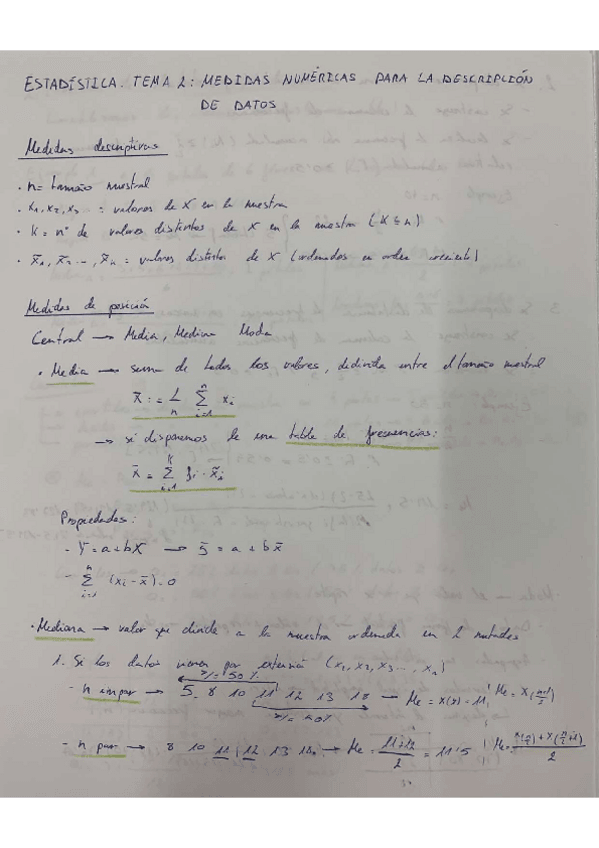 ESTADÍSTICA. TEMA 2: MEDIDAS NUMÉRICAS PARA LA DESCRIPCIÓN
DE DATOS
Medidas descriptivas
· n = tamaño muestral
· x₁, x₂, x₃ = valores de X en la muestra
· K = nº de valores distintos de X en la muestra (K ≤ n)
· x̃₁, x̃₂ ..., x̃ₖ = valores distintos de X (ordenados en orden creciente)
Medidas de posición
Central → Media, Mediana Moda
· Media → suma de todos los valores, dividida entre el tamaño muestral
x̄ := 1/n Σᵢ₌₁ⁿ xᵢ
→ si disponemos de una tabla de frecuencias:
x̄ = Σᵢ₌₁ᴷ fᵢ · x̃ᵢ
Propiedades:
- Y = a + bX → ȳ = a + bx̄
- Σᵢ₌₁ⁿ (xᵢ - x̄) = 0
· Mediana → valor que divide a la muestra ordenada en 2 mitades
1. Si los datos vienen por extensión (x₁, x₂, x₃ ..., xₙ)
>/= 50%
- n impar → 5 8 10 11 12 13 18 → Me = X(4) = 11 Me = X(n+1/2)
- n par → 8 10 11 12 13 → Me = 11+12/2 = 11'5 Me = X(n/2) + X(n/2+1)/2